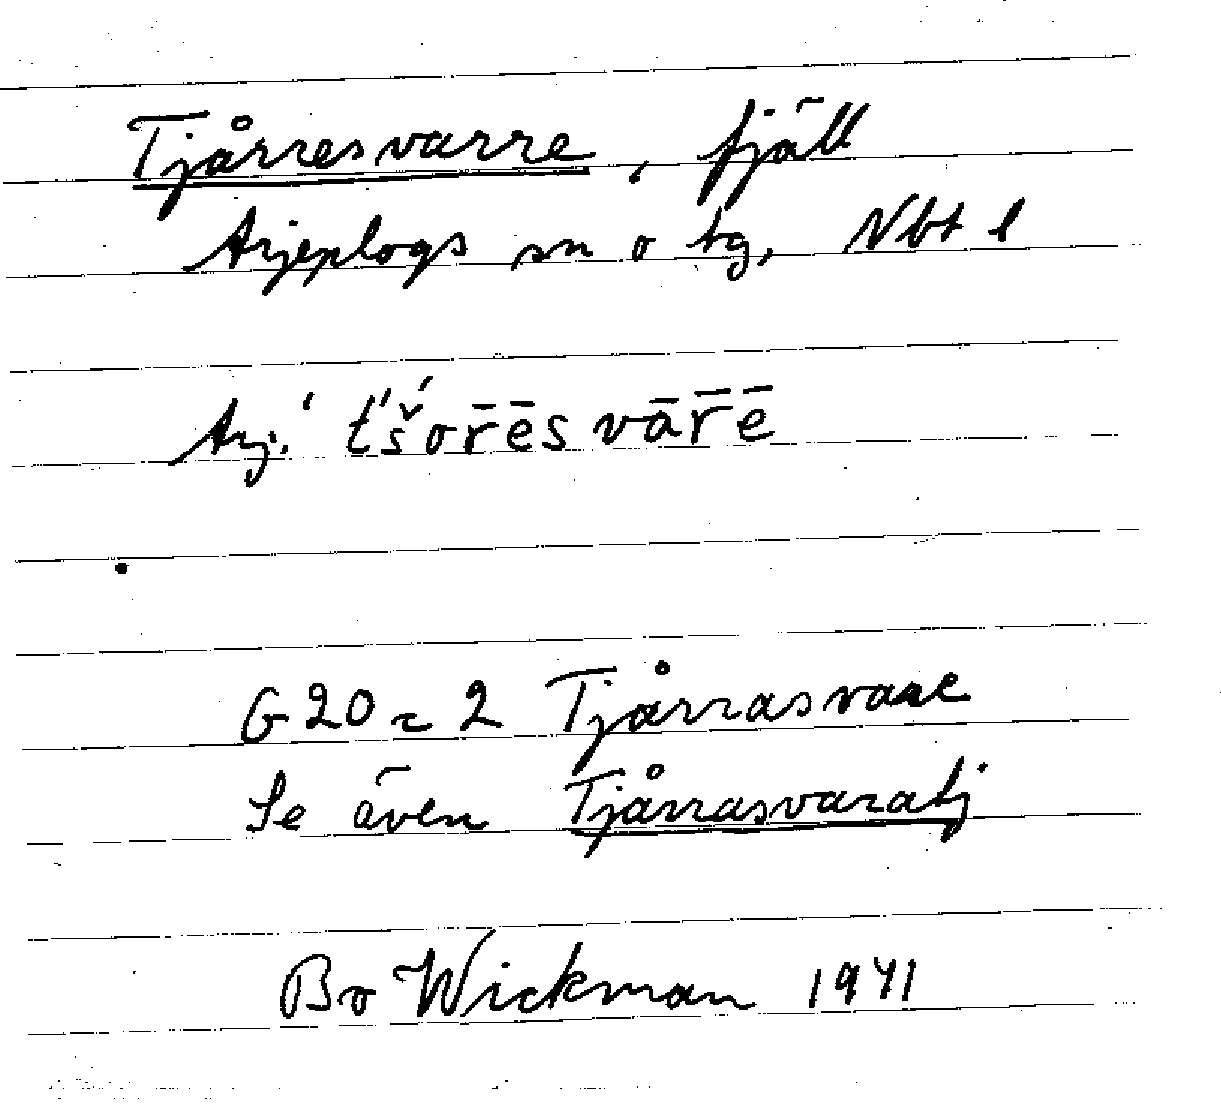 Tjårresvarre, fjäll
Arjeplogs sn o tg, Nbt l
Arj. ' t́'š́or̄ēs vār̄ē
G 20 ~ 2 Tjårrasvare
Se även Tjårrasvaratj
Bo Wickman 1941